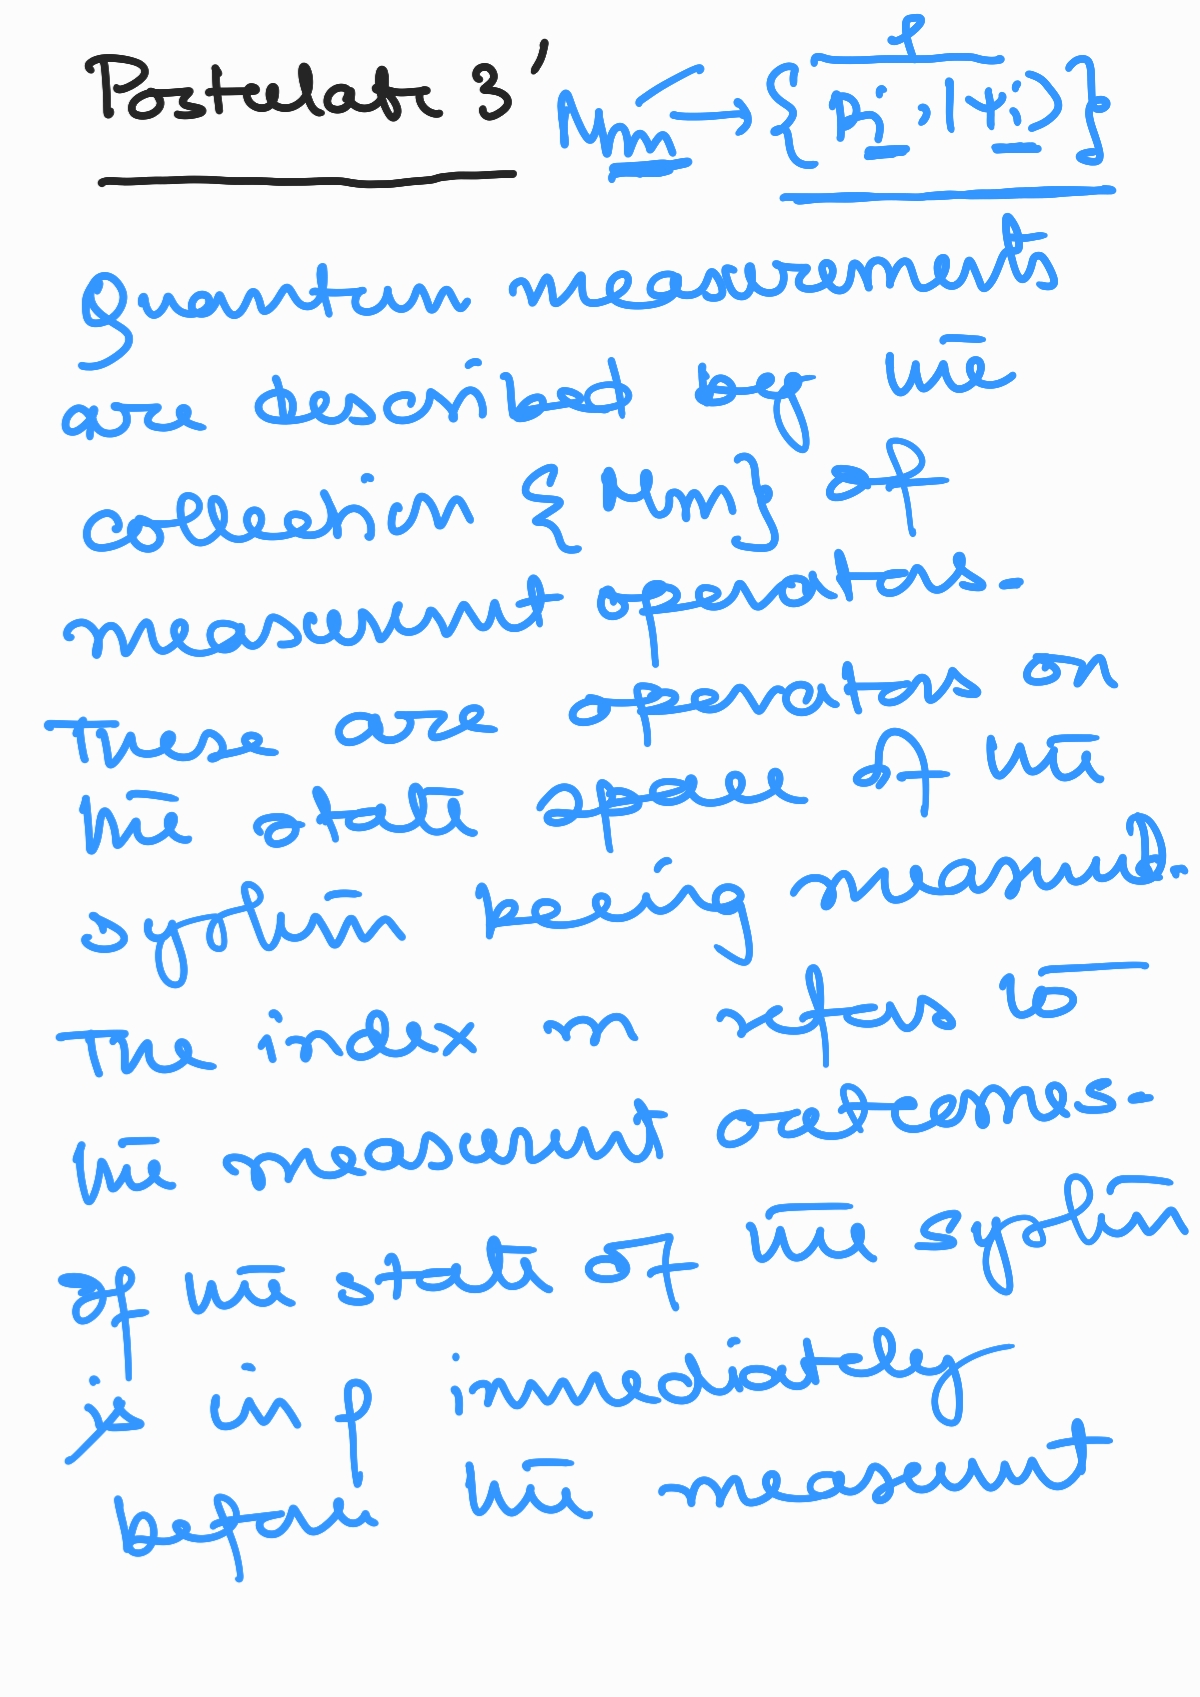 Postulate 3' M_m → { p_i , |ψ_i⟩ } ρ
Quantum measurements
are described by the
collection {M_m} of
measurement operators.
These are operators on
the state space of the
system being measured.
The index m refers to
the measurement outcomes.
If the state of the system
is in ρ immediately
before the measurement